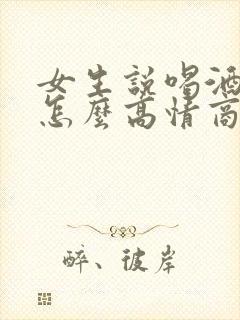 女生說喝酒
怎麼高情商
醉、彼岸